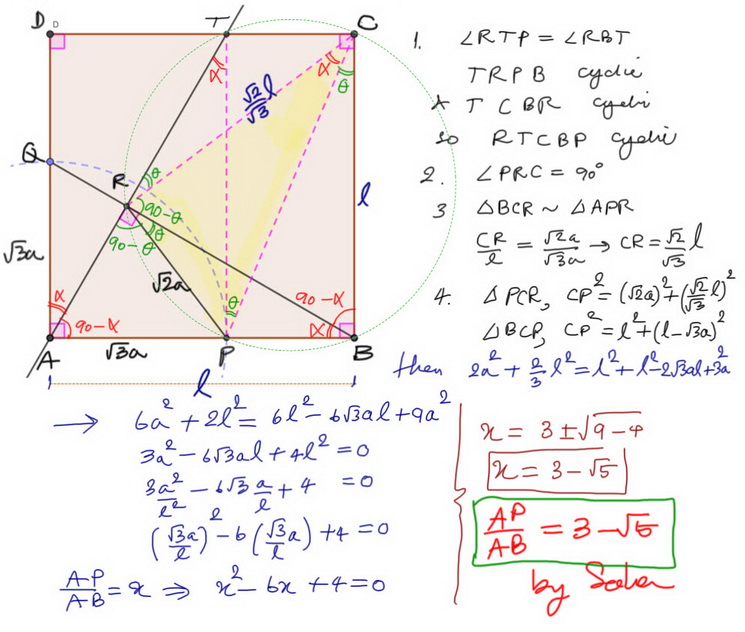 D D T C
α α θ
√2/√3 l
Q
R θ
90-θ
90-θ θ
l
√3a
√2a
α θ 90-α
90-α α
A √3a P B
l
1. ∠RTP = ∠RBT
TRPB cyclic
∧ TCBR cyclic
so RTCBP cyclic
2. ∠PRC = 90°
3 △BCR ~ △APR
CR/l = √2a/√3a → CR = √2/√3 l
4. △PCR, CP² = (√2a)² + (√2/√3 l)²
△BCP, CP² = l² + (l-√3a)²
then 2a² + 2/3 l² = l² + l² - 2√3al + 3a²
→ 6a² + 2l² = 6l² - 6√3al + 9a²
3a² - 6√3al + 4l² = 0
3a²/l² - 6√3 a/l + 4 = 0
(√3a/l)² - 6(√3a/l) + 4 = 0
AP/AB = x ⇒ x² - 6x + 4 = 0
x = 3 ± √9-4
x = 3 - √5
AP/AB = 3 - √5
by Saba